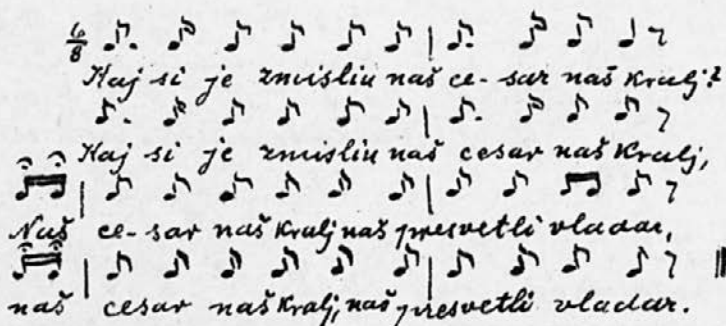 6/8
Kaj si je zmisliu naš ce-sar naš kralj?
Kaj si je zmisliu naš cesar naš kralj,
Naš ce-sar naš kralj naš presvetli vladar,
naš cesar naš kralj, naš presvetli vladar.